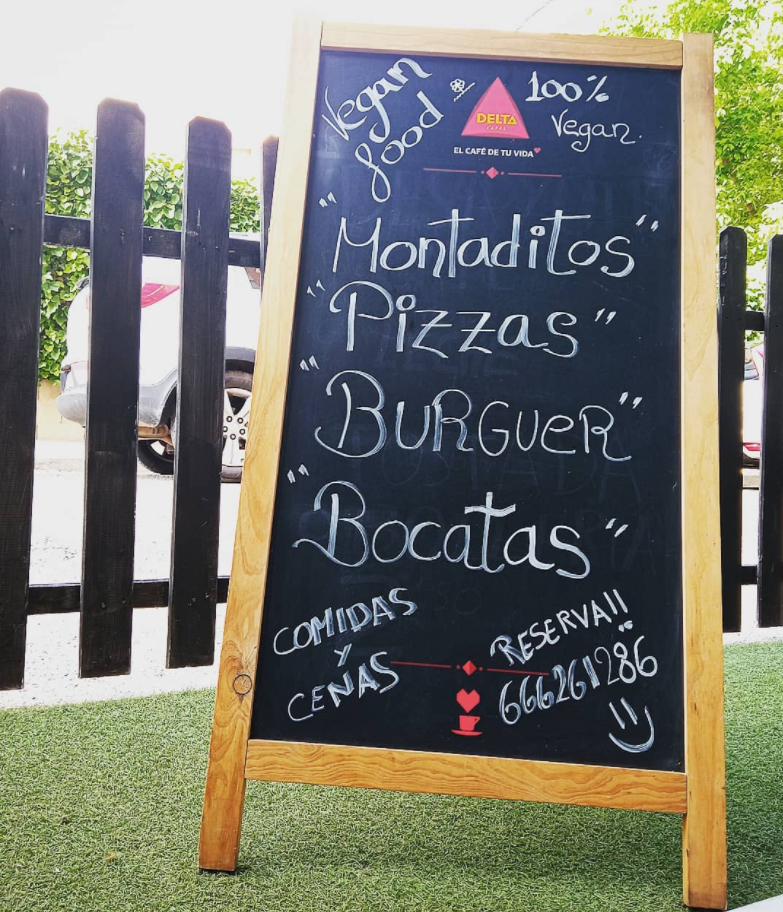 Vegan
food
DELTA
CAFÉS
EL CAFÉ DE TU VIDA
100%
Vegan.
"Montaditos"
"Pizzas"
"BURGUER"
"Bocatas"
COMIDAS
Y
CENAS
RESERVA!!
666261286